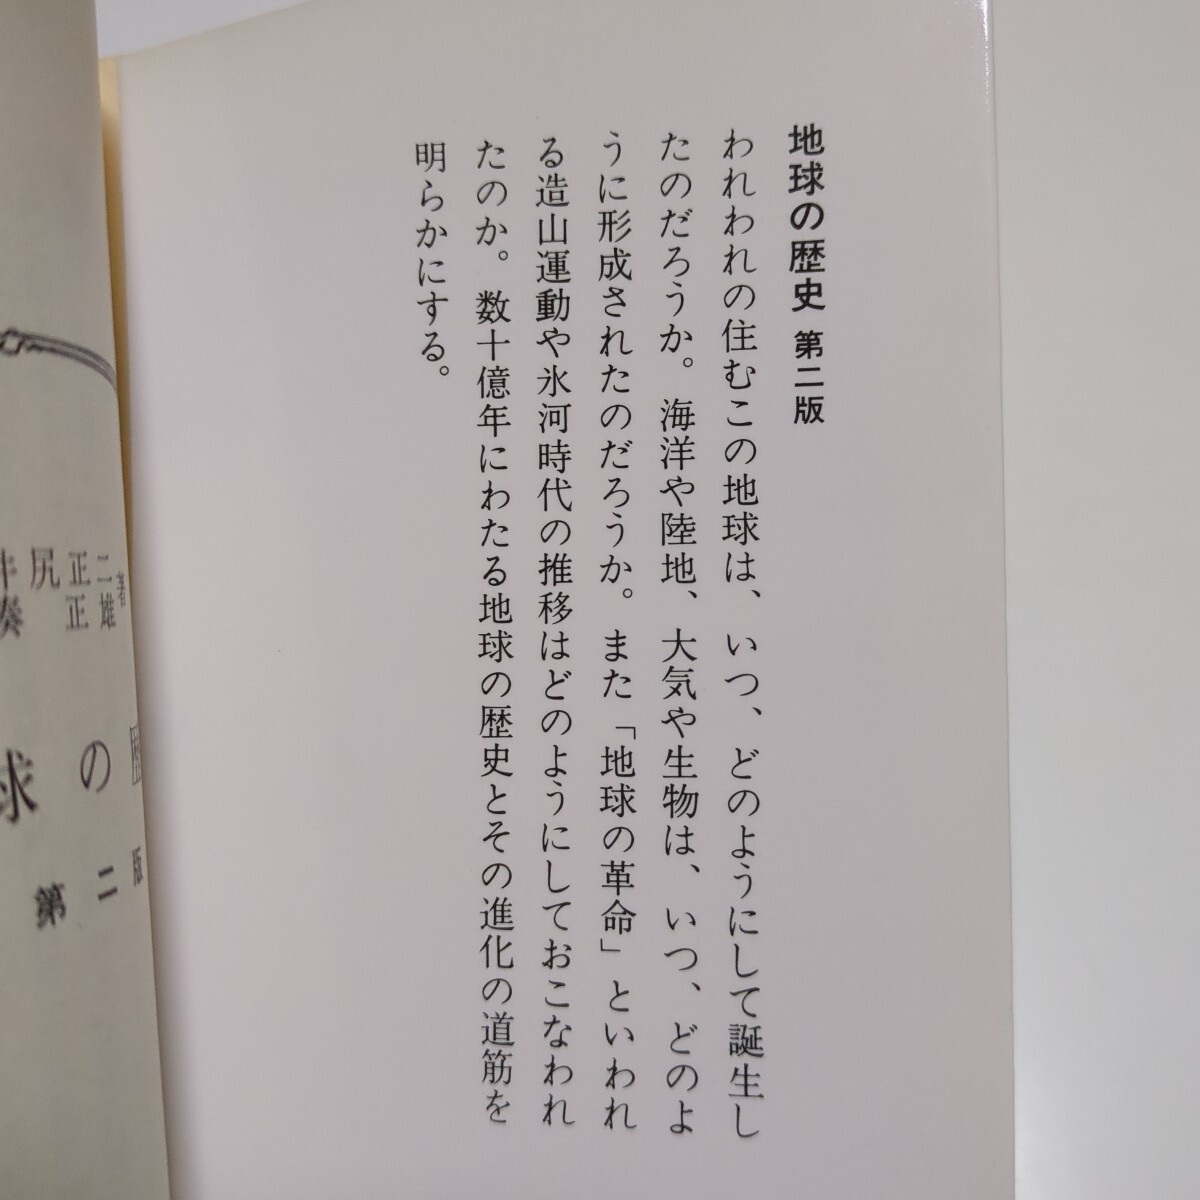 地球の歴史 第二版
われわれの住むこの地球は、いつ、どのようにして誕生し
たのだろうか。海洋や陸地、大気や生物は、いつ、どのよ
うに形成されたのだろうか。また「地球の革命」といわれ
る造山運動や氷河時代の推移はどのようにしておこなわれ
たのか。数十億年にわたる地球の歴史とその進化の道筋を
明らかにする。
井尻正二
湊正雄
著
球の歴
第二版